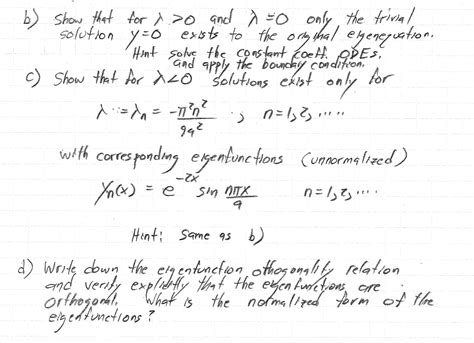 b) Show that for λ > 0 and λ = 0 only the trivial
solution y=0 exists to the original eigenequation.
Hint solve the constant coeff. ODEs,
and apply the boundary condition.
c) Show that for λ<0 solutions exist only for
λ = λn = -π²n² / 9a² ; n=1,2, .....
with corresponding eigenfunctions (unnormalized)
Yn(x) = e^-2x sin nπx/a n=1,2, ....
Hint: Same as b)
d) Write down the eigenfunction othogonality relation
and verify explicitly that the eigenfunctions are
orthogonal. What is the normalized form of the
eigenfunctions?